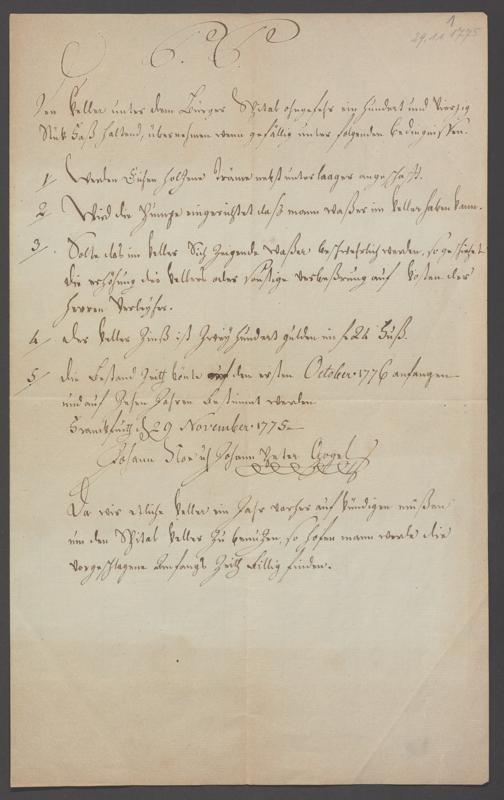 1
29.11.1775
Den Keller unter dem Burger Spital ohngefehr ein hundert und Vierzig
Stük Faß haltend, übernehmen wenn gefällig unter folgenden bedingnüssen.
1/ Werden Eichen holtzene Träme nebst unterlaager angeschafft.
2/ Wird die Pumpe eingerichtet daß mann waßer im Keller haben kann.
3/. Solte das im Keller Sich Zeigende waßer beschwehrlich werden, so geschiehet
die erhöhung des Kellers oder sonstige verbeßrung auf kosten der
herren Verleyher.
4/ der Keller Zinß ist Zwey hundert gulden im f 24 Fuß.
5/ die Bestand Zeitt könte den ersten October 1776 anfangen
und auf Zehen Jahren bestimmt werden
Franckfurth d 29 November 1775
Johann Noe & Johann Peter Gogel
Da wir etliche Keller ein Jahr vorher aufkündigen müßen
um den Spital Keller zu benutzen, so hofen mann werde die
vorgeschlagene Anfangs Zeitt billig finden.